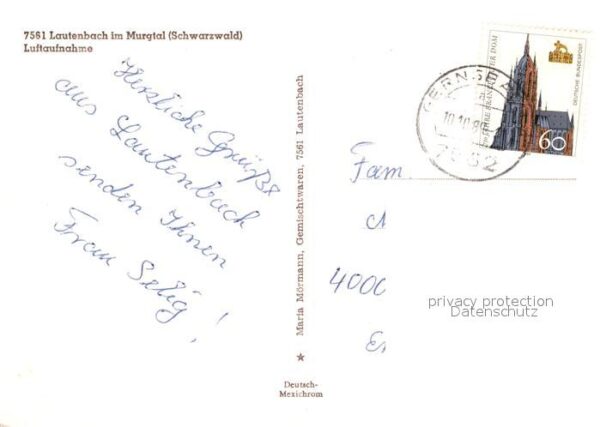 7561 Lautenbach im Murgtal (Schwarzwald)
Luftaufnahme
Herzliche Grüße
aus Lautenbach
senden Ihnen
Frau Selig!
Maria Mörmann, Gemischtwaren, 7561 Lautenbach
Deutsch-
Mexichrom
DEUTSCHE BUNDESPOST
60
GERNSBA
10.10.8
7562
Fam.
4000
privacy protection
Datenschutz